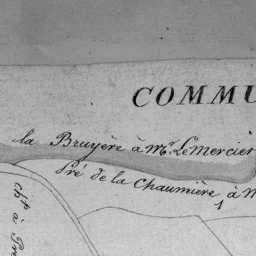 COMMU
la Bruyère à Mr. Le Mercier
Pré de la Chaumière à M
1
ch.n à Pré